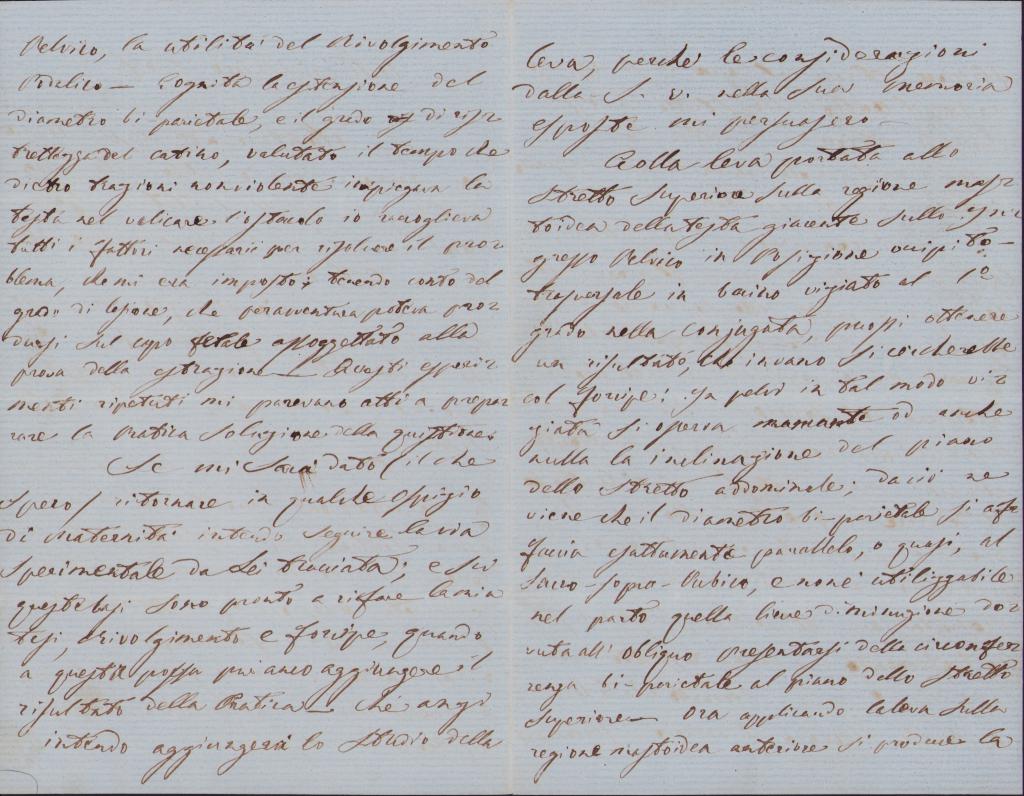 Pelvico, la utilità del Rivolgimento
Podalico — Cognita la estensione del
diametro bi parietale, e il grado di rist
trettezza del catino, valutato il tempo che
dietro trazioni non violente impiegava la
testa nel valicare l'ostacolo io raccoglieva
tutti i fattori necessarii per risolvere il pro=
blema, che mi era imposto; tenendo conto del
grado di lesione, che peravventura poteva pro=
dursi sul capo fetale assoggettato alla
prova della estrazione — Questi esperi=
menti ripetuti mi parevano atti a prepa=
rare la pratica soluzione della questione.
Se mi sarà dato (il che
spero) ritornare in qualche ospizio
di Maternità intendo seguire la via
sperimentale da Lei tracciata; e su
queste basi sono pronto a rifare la mia
tesi, Rivolgimento e forcipe, quando
a queste possa pur anco aggiungere il
risultato della Pratica — Che anzi
intendo aggiungere lo studio della
leva, perchè le considerazioni
dalla S. V. nella sua memoria
esposte mi persuasero —
Colla leva portata allo
stretto superiore sulla regione mas=
toidea della testa giacente sullo In=
gresso Pelvico in Posizione occipito=
trasversale in bacino viziato al 1°
grado nella conjugata, puossi ottenere
un risultato, che invano si cercherebbe
col forcipe! In pelvi in tal modo vi=
ziata si osserva mancante od anche
nulla la inclinazione del piano
dello stretto addominale; da ciò ne
viene che il diametro bi-parietale si af=
faccia esattamente parallelo, o quasi, al
sacro-sopra-Pubico, e non è utilizzabile
nel parto quella lieve diminuzione do=
vuta all' obliquo presentarsi della circonfe=
renza bi-parietale al piano dello stretto
superiore — Ora applicando la leva sulla
regione mastoidea anteriore si produce la